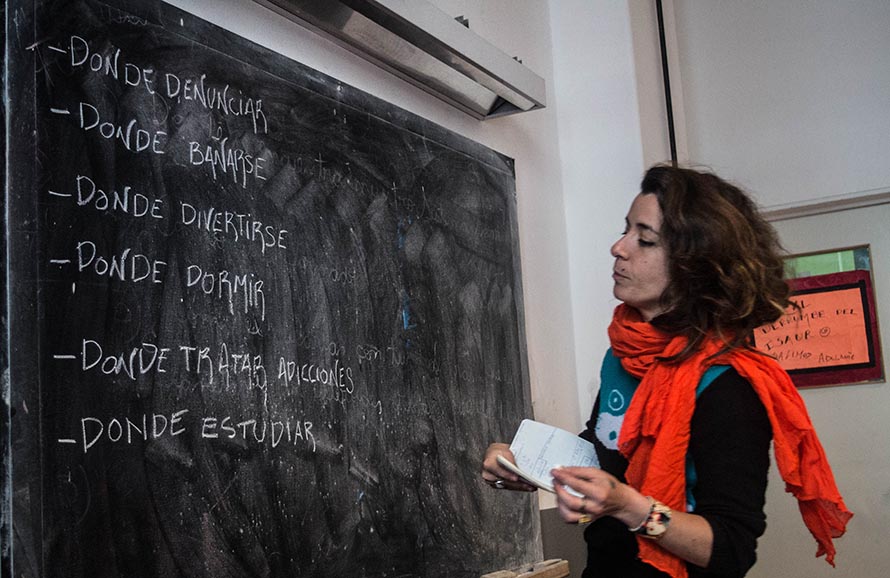 - DONDE DENUNCIAR
- DONDE BAÑARSE
- DONDE DIVERTIRSE
- DONDE DORMIR
- DONDE TRATAR ADICCIONES
- DONDE ESTUDIAR
AL
DERRUMBE DEL